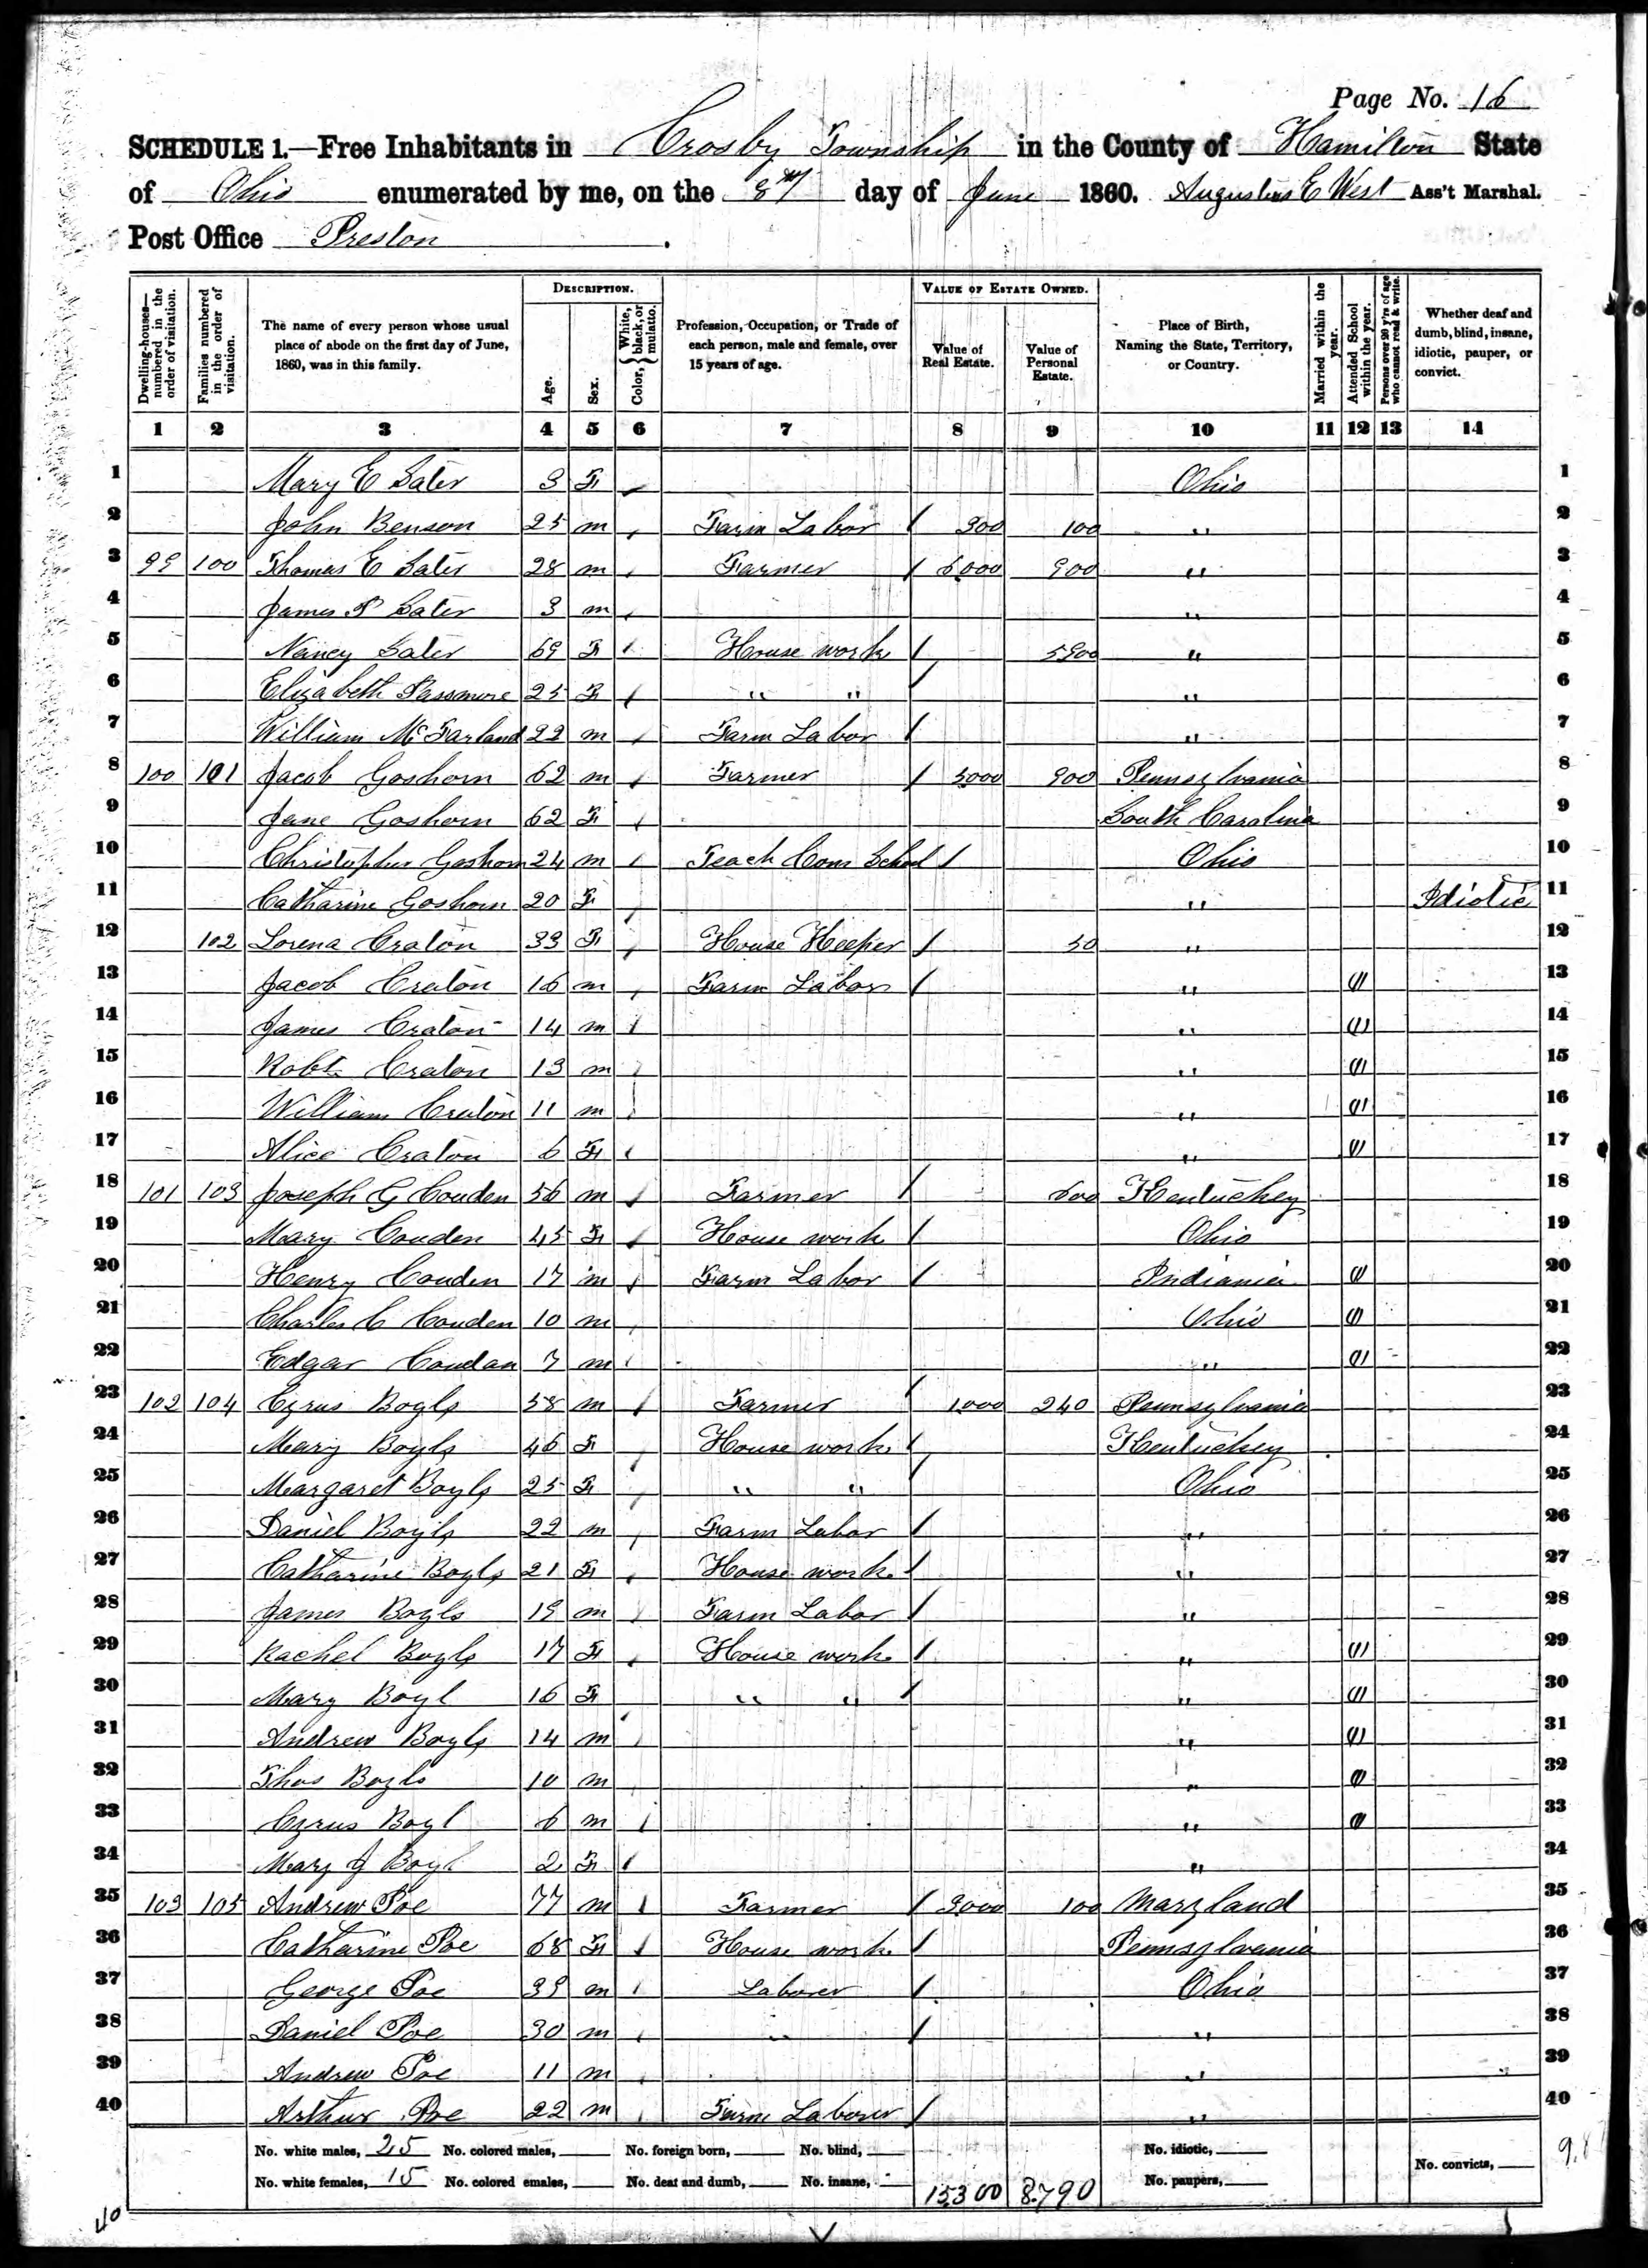 Page No. 16
SCHEDULE 1.—Free Inhabitants in Crosby Township in the County of Hamilton State
of Ohio enumerated by me, on the 8th day of June 1860. Augustus E West Ass't Marshal.
Post Office Preston.
Dwelling-houses—numbered in the order of visitation.
Families numbered in the order of visitation.
The name of every person whose usual place of abode on the first day of June, 1860, was in this family.
DESCRIPTION.
Age.
Sex.
Color, { White, black, or mulatto.
Profession, Occupation, or Trade of each person, male and female, over 15 years of age.
VALUE OF ESTATE OWNED.
Value of Real Estate.
Value of Personal Estate.
Place of Birth, Naming the State, Territory, or Country.
Married within the year.
Attended School within the year.
Persons over 20 y'rs of age who cannot read & write.
Whether deaf and dumb, blind, insane, idiotic, pauper, or convict.
1 2 3 4 5 6 7 8 9 10 11 12 13 14
1 Mary E Sater 3 F Ohio 1
2 John Benson 25 m Farm Labor / 300 100 " 2
3 99 100 Thomas E Sater 28 m Farmer / 6000 900 " 3
4 James P Sater 3 m " 4
5 Nancy Sater 69 F House work / 5900 " 5
6 Elizabeth Passmore 25 F " " / " 6
7 William McFarland 22 m Farm Labor / " 7
8 100 101 Jacob Goshorn 62 m Farmer / 5000 900 Pennsylvania 8
9 Jane Goshorn 62 F South Carolina 9
10 Christopher Goshorn 24 m Teach Com School / Ohio 10
11 Catharine Goshorn 20 F " Idiotic 11
12 102 Lorena Craton 33 F House Keeper / 50 " 12
13 Jacob Craton 16 m Farm Labor / " 13
14 James Craton 14 m " 14
15 Robt Craton 13 m " 15
16 William Craton 11 m " 16
17 Alice Craton 6 F " 17
18 101 103 Joseph G Couden 56 m Farmer / 600 Kentuckey 18
19 Mary Couden 45 F House work / Ohio 19
20 Henry Couden 17 m Farm Labor / Indiania 20
21 Charles C Couden 10 m Ohio 21
22 Edgar Coudan 7 m " 22
23 102 104 Cyrus Boyls 58 m Farmer / 1000 240 Pennsylvania 23
24 Mary Boyls 46 F House work / Kentuckey 24
25 Margaret Boyls 25 F " " / Ohio 25
26 Daniel Boyls 22 m Farm Labor / " 26
27 Catharine Boyls 21 F House work / " 27
28 James Boyls 19 m Farm Labor / " 28
29 Rachel Boyls 17 F House work / " 29
30 Mary Boyl 16 F " " / " 30
31 Andrew Boyls 14 m " 31
32 Thos Boyls 10 m " 32
33 Cyrus Boyl 6 m " 33
34 Mary J Boyl 2 F " 34
35 103 105 Andrew Poe 77 m Farmer / 3000 100 Maryland 35
36 Catharine Poe 68 F House work / Pennsylvania 36
37 George Poe 39 m Laborer / Ohio 37
38 Daniel Poe 30 m " / " 38
39 Andrew Poe 11 m " 39
40 Arthur Poe 22 m Farm Laborer / " 40
No. white males, 25 No. colored males, No. foreign born, No. blind, No. idiotic,
No. white females, 15 No. colored emales, No. deaf and dumb, No. insane, 15300 8790 No. paupers, No. convicts,
40